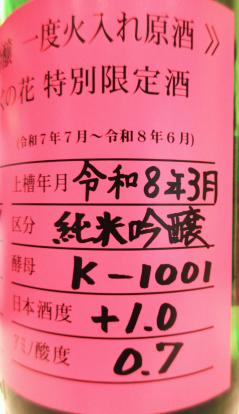 醸 一度火入れ原酒》
の花 特別限定酒
(令和7年7月~令和8年6月)
上槽年月 令和8年3月
区分 純米吟醸
酵母 K-1001
日本酒度 +1.0
アミノ酸度 0.7